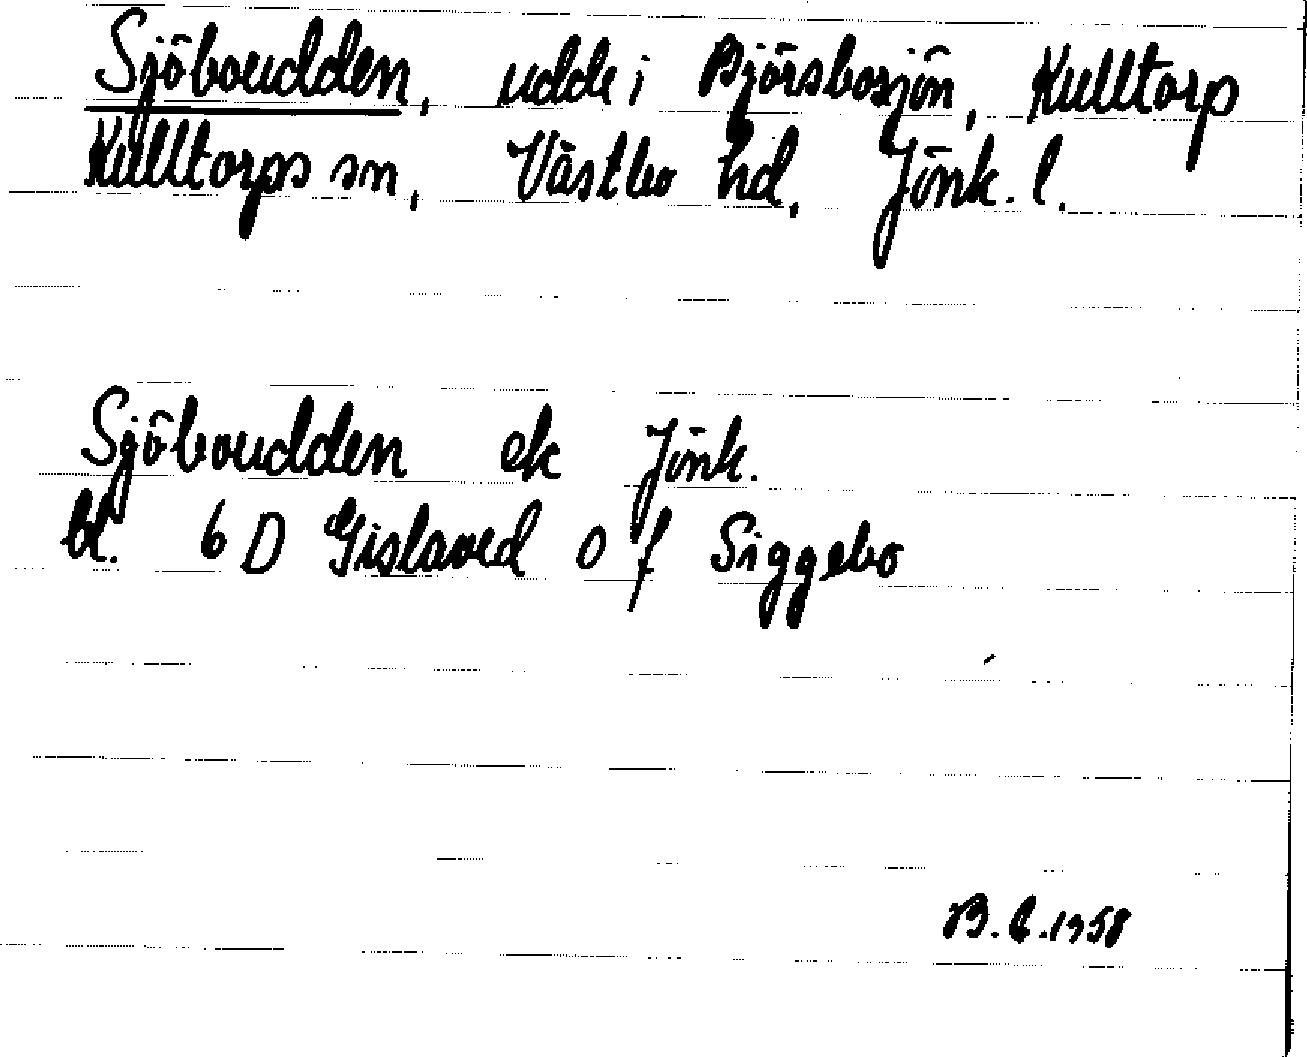 Sjöboudden, udde i Björsbosjön, Kulltorp
Kulltorps sn, Västbo hd, Jönk. l.
Sjöboudden ek Jönk.
bl. 6 D Gislaved O f Siggebo
B. E. 1958